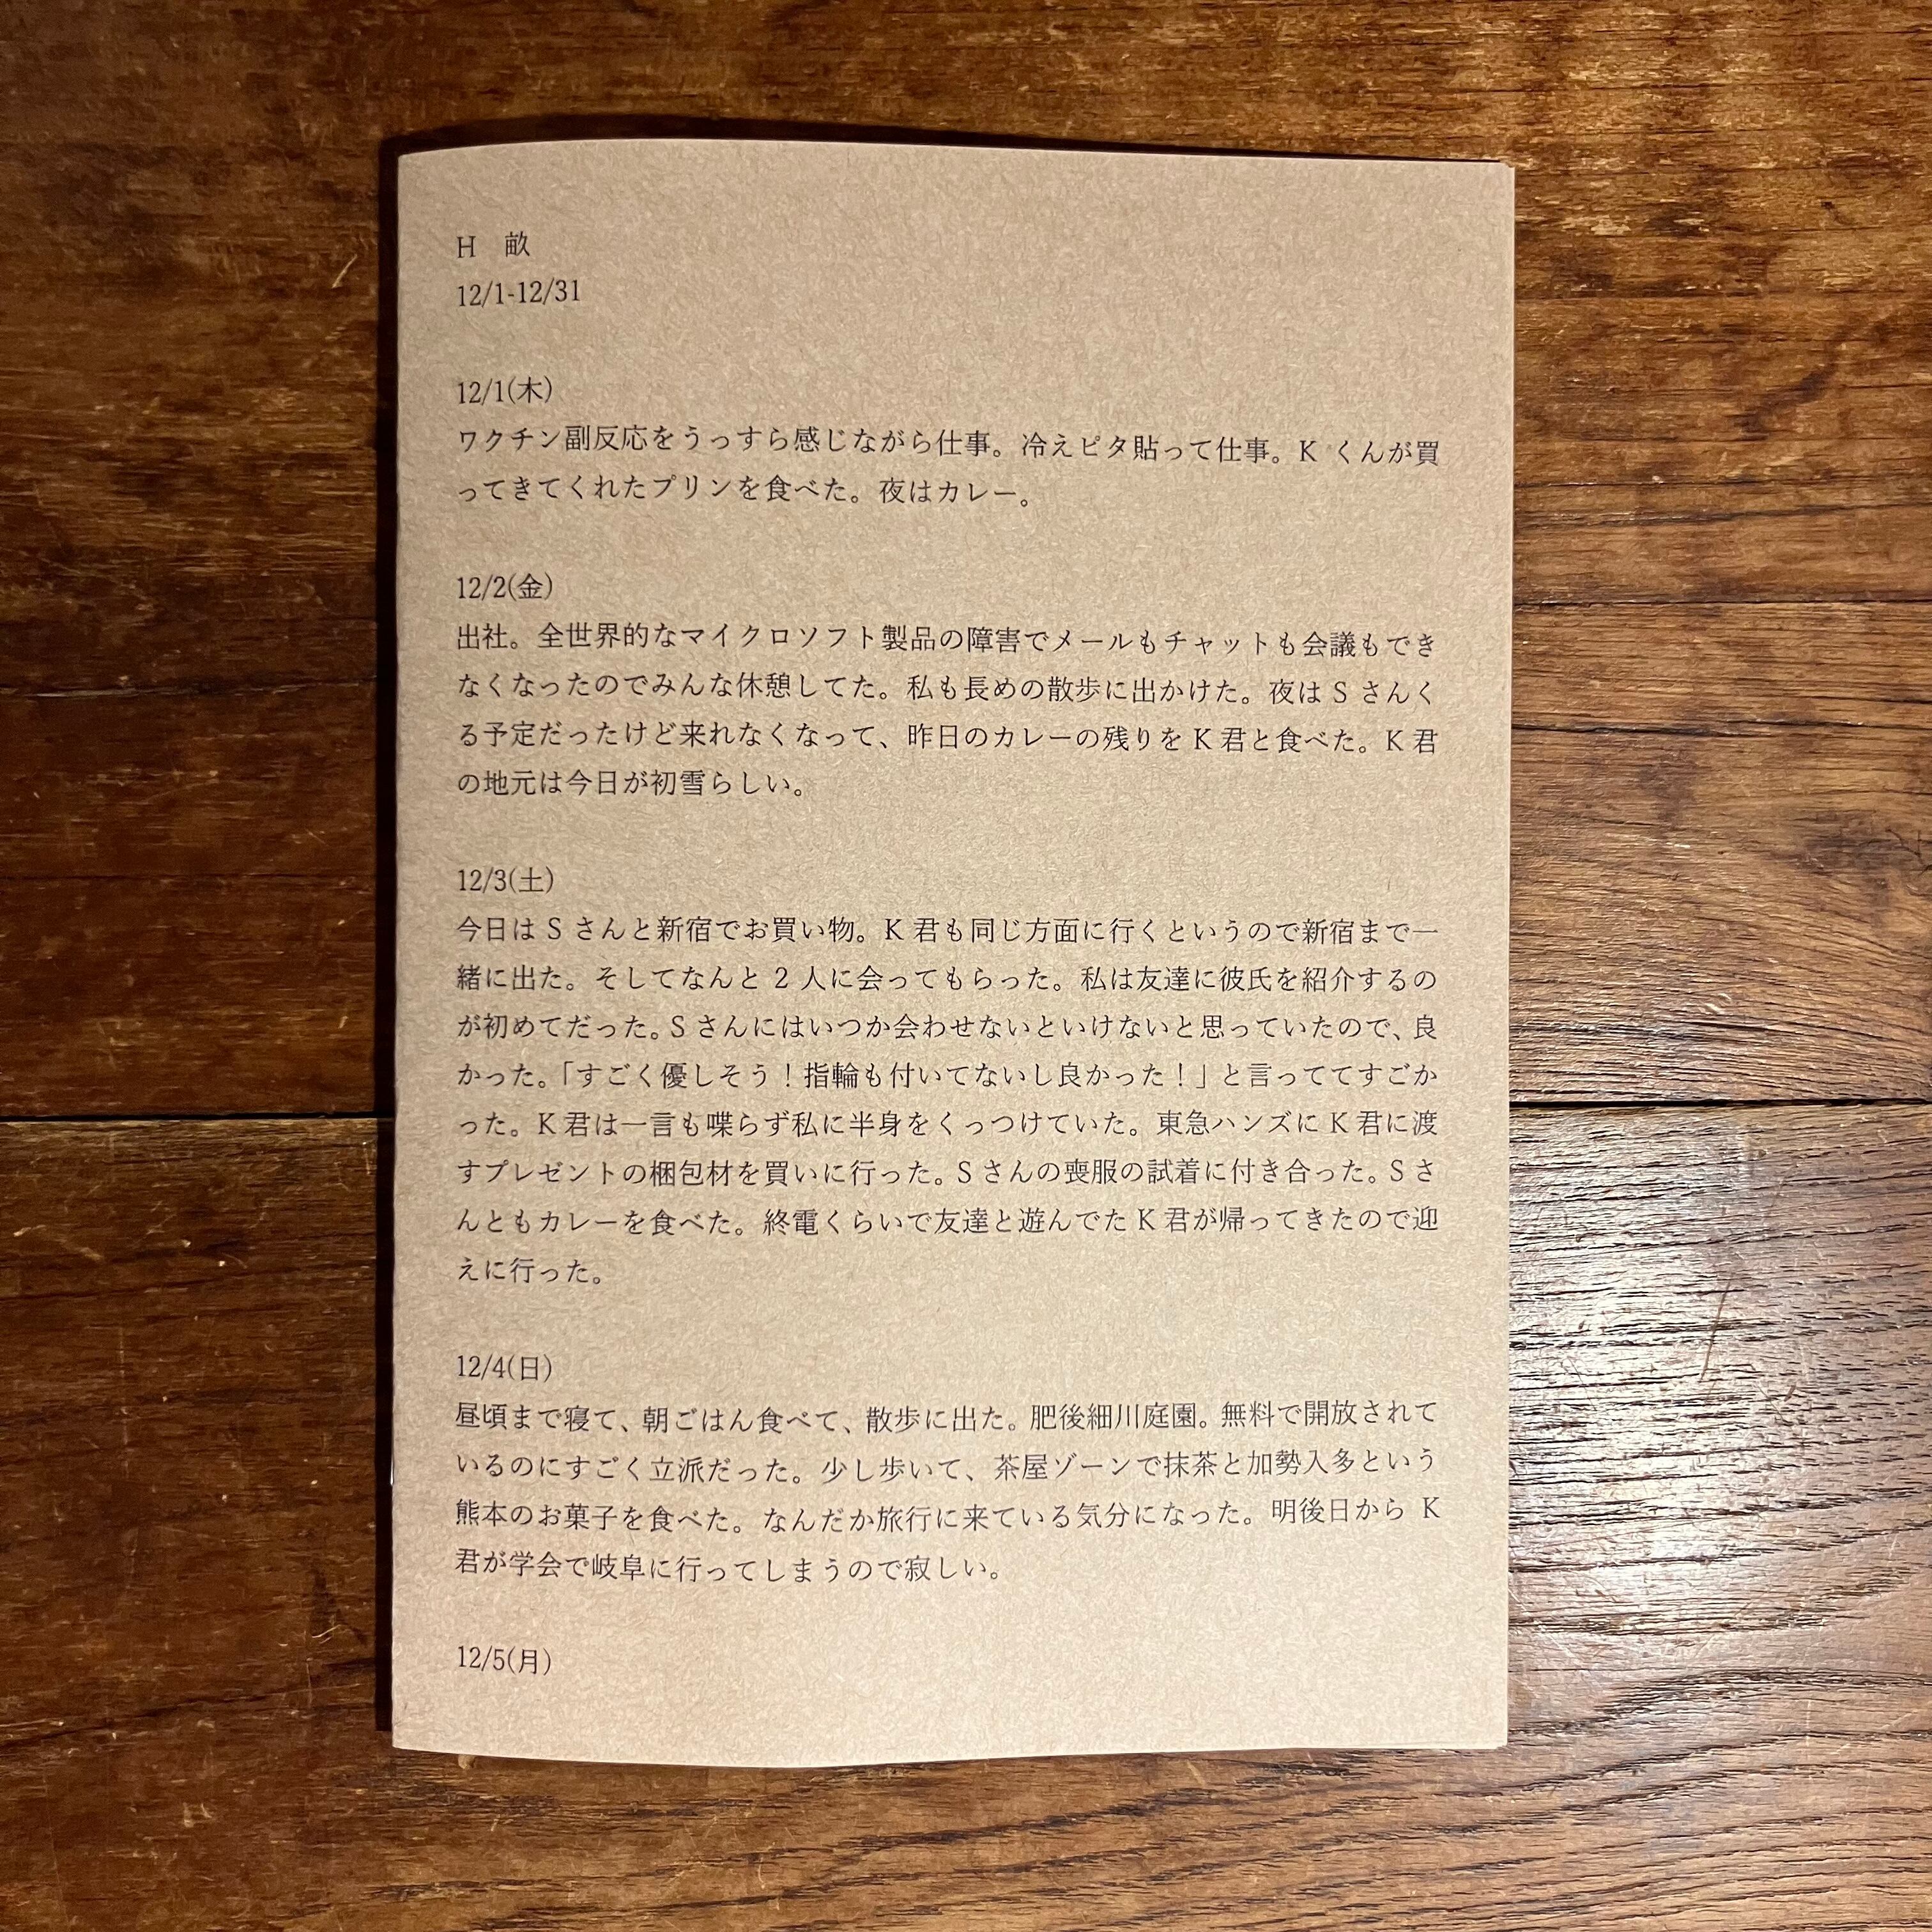 H　畝
12/1-12/31
12/1(木)
ワクチン副反応をうっすら感じながら仕事。冷えピタ貼って仕事。K くんが買
ってきてくれたプリンを食べた。夜はカレー。
12/2(金)
出社。全世界的なマイクロソフト製品の障害でメールもチャットも会議もでき
なくなったのでみんな休憩してた。私も長めの散歩に出かけた。夜は S さんく
る予定だったけど来れなくなって、昨日のカレーの残りを K 君と食べた。K 君
の地元は今日が初雪らしい。
12/3(土)
今日は S さんと新宿でお買い物。K 君も同じ方面に行くというので新宿まで一
緒に出た。そしてなんと 2 人に会ってもらった。私は友達に彼氏を紹介するの
が初めてだった。S さんにはいつか会わせないといけないと思っていたので、良
かった。「すごく優しそう！指輪も付いてないし良かった！」と言っててすごか
った。K 君は一言も喋らず私に半身をくっつけていた。東急ハンズに K 君に渡
すプレゼントの梱包材を買いに行った。S さんの喪服の試着に付き合った。S さ
んともカレーを食べた。終電くらいで友達と遊んでた K 君が帰ってきたので迎
えに行った。
12/4(日)
昼頃まで寝て、朝ごはん食べて、散歩に出た。肥後細川庭園。無料で開放されて
いるのにすごく立派だった。少し歩いて、茶屋ゾーンで抹茶と加勢入多という
熊本のお菓子を食べた。なんだか旅行に来ている気分になった。明後日から K
君が学会で岐阜に行ってしまうので寂しい。
12/5(月)